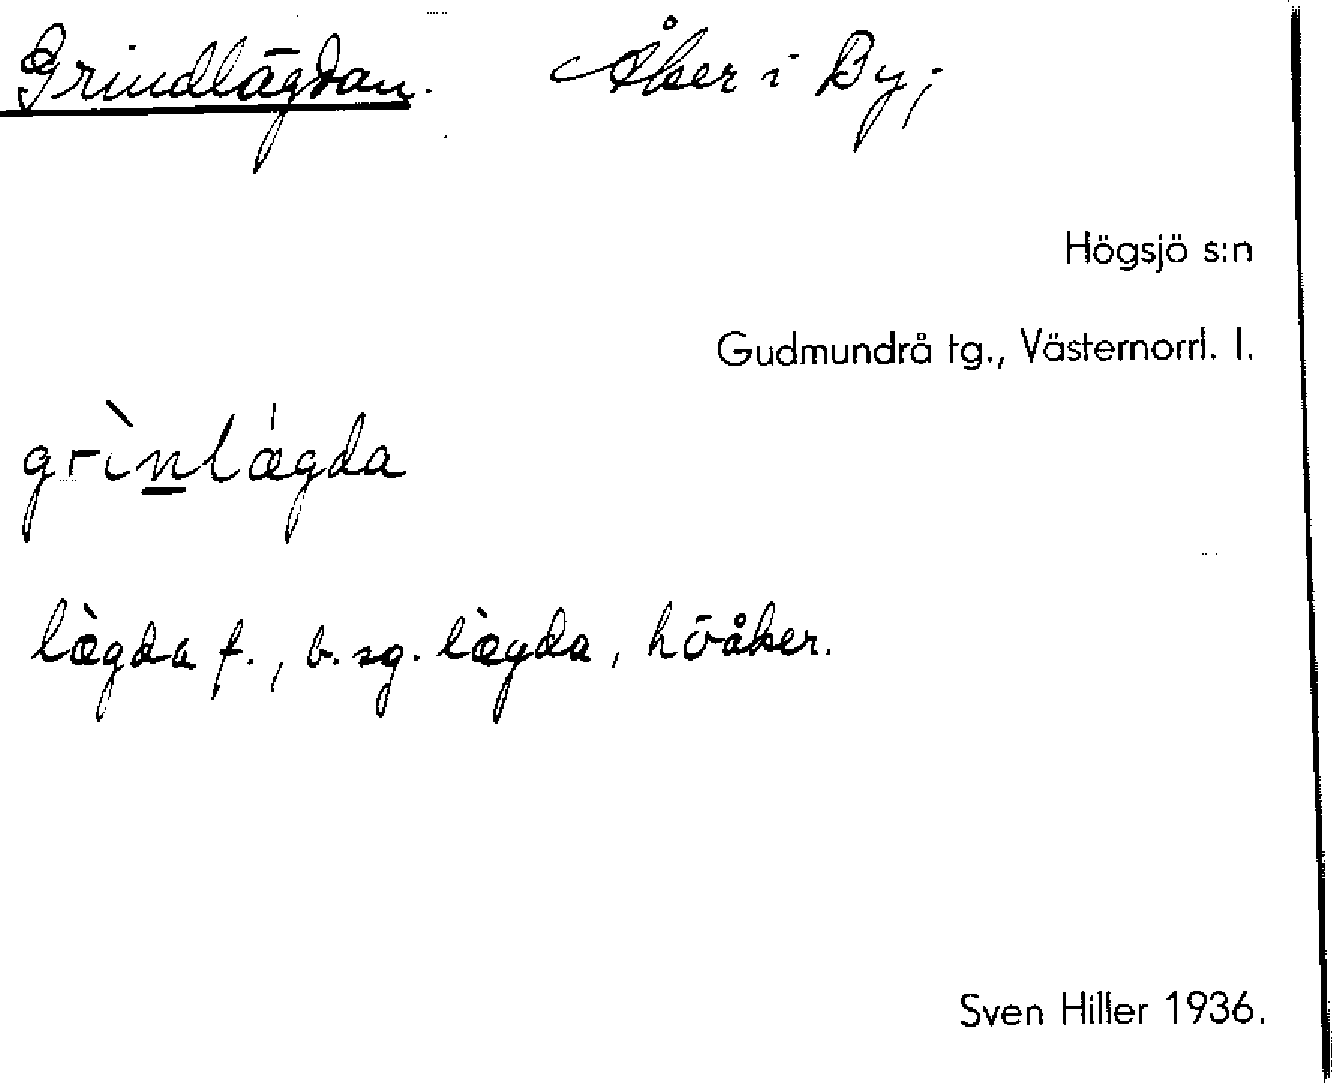 Grindlägdan. Åker i By;
Högsjö s:n
Gudmundrå tg., Västernorrl. l.
grìnlǽgda
læ̀gda f., b. sg. læ̀gda, höåker.
Sven Hiller 1936.